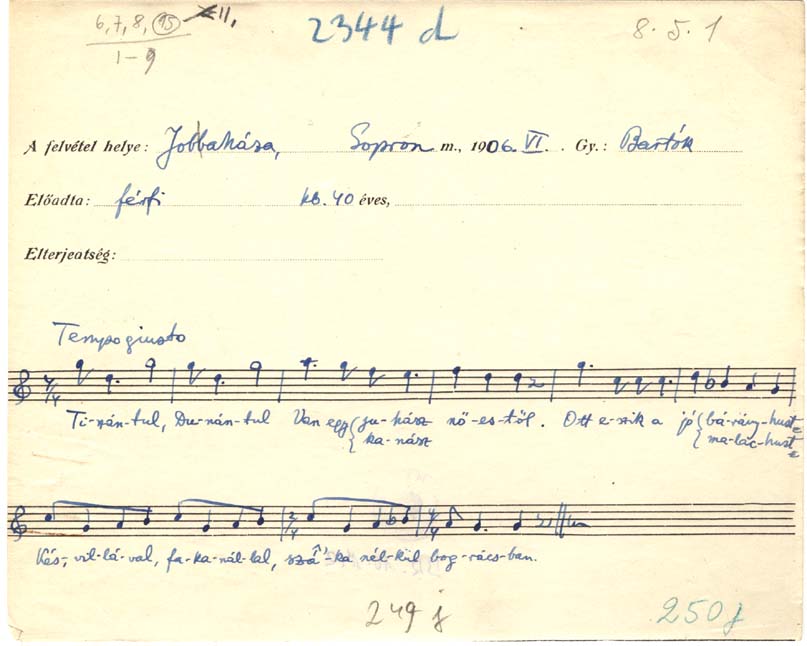 6, 7, 8, 15 XII,
1-9
2344 d
8. 5. 1
A felvétel helye: Jobbaháza, Sopron m., 1906. VI. Gy.: Bartók
Előadta: férfi kb. 40 éves,
Elterjeatség:
Tempo giusto
4/4
Ti-nán-tul, Du-nán-tul Van egy ju-hász nő-es-től. Ott e-szik a jó bá-rány-hust
ka-nász ma-lac-hust
2/4 4/4
Kés-, vil-lá-val, fa-ka-nál-lal, szá-ka nél-kül bog-rács-ban.
249 j
250 j